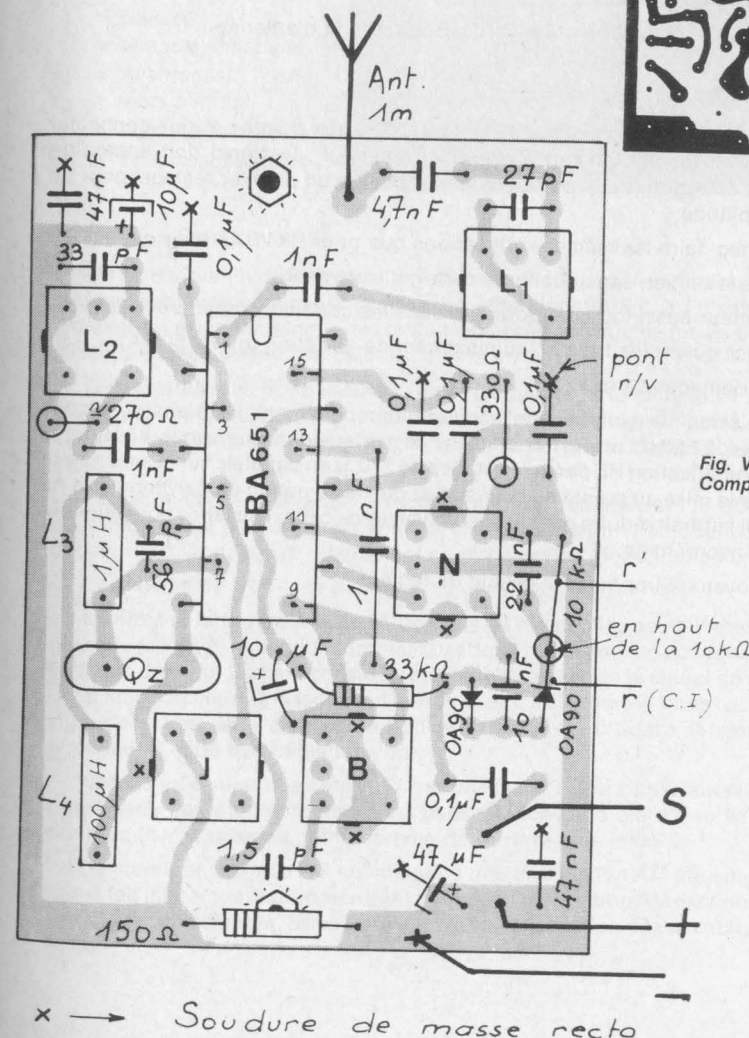 Ant.
1m
47nF
10µF
0,1µF
4,7nF
27pF
33 pF
1nF
L1
L2
1
3
5
7
15
13
11
9
TBA651
0,1µF
0,1µF
330Ω
0,1µF
pont
r/v
270Ω
1nF
Fig. V
Comp
L3
1µH
56 pF
1 nF
N
22 nF
10 kΩ
r
en haut
de la 10kΩ
r (C.I)
Qz
10 µF
33kΩ
OA90
10 nF
OA90
L4
100µH
J
B
0,1µF
S
1,5 pF
47 µF
47nF
150Ω
+
+
+
+
-
x → Soudure de masse recto